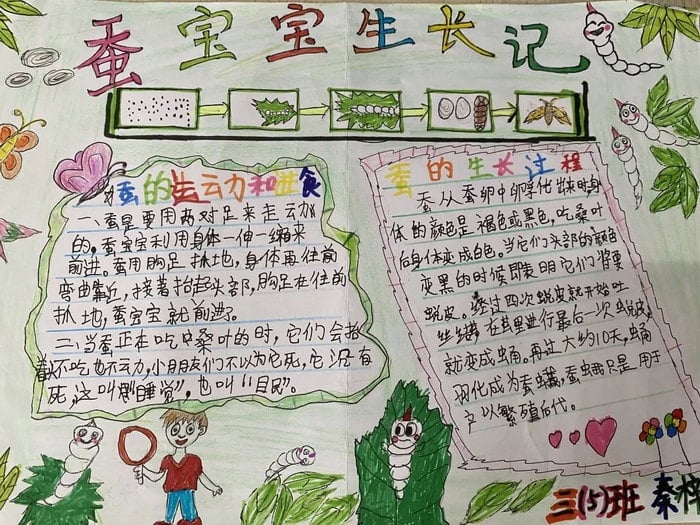 蚕宝宝生长记
蚕的运动和进食
一、蚕是要用两对足来走动
的。蚕宝宝利用身体一伸一缩来
前进。蚕用胸足扒地，身体再往前
弯曲靠近，接着抬起头部，胸足在往前
扒地，蚕宝宝就前进。
二、当蚕正在吃桑叶的时，它们会抬
着不吃也不动，小朋友们不以为它死，它没有
死，这叫“睡觉”，也叫“目民”。
蚕的生长过程
蚕从蚕卵中孵化出来时，身
体的颜色是褐色或黑色，吃桑叶
后身体变成白色。当它们头部的颜色
变黑的时候即表明它们将要
蜕皮。经过四次蜕皮就开始吐
丝结茧，在茧里进行最后一次蜕皮，
就变成蛹。再过大约10天，蛹
羽化成为蚕蛾，蚕蛾只是用于
产以繁殖后代。
三(5)班 秦